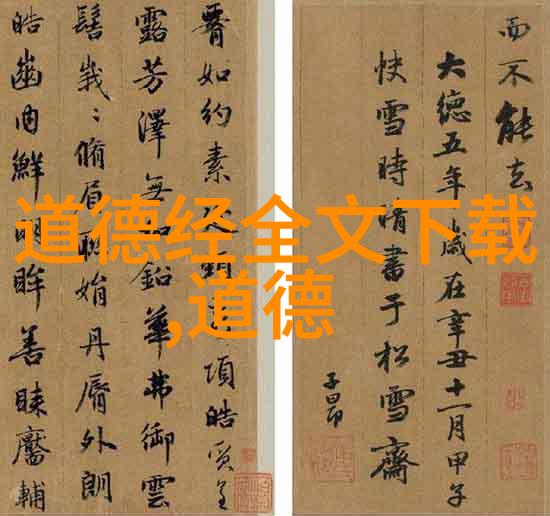 道德经全文下载
,道德
如約素延頸秀項皓質呈
露芳澤無加鉛華弗御雲
髻峩〻脩眉聯娟丹脣外朗
皓齒内鮮明眸善睐靨輔
而不能去
大德五年歲在辛丑十一月甲子
快雪時晴書于松雪齋
子昂